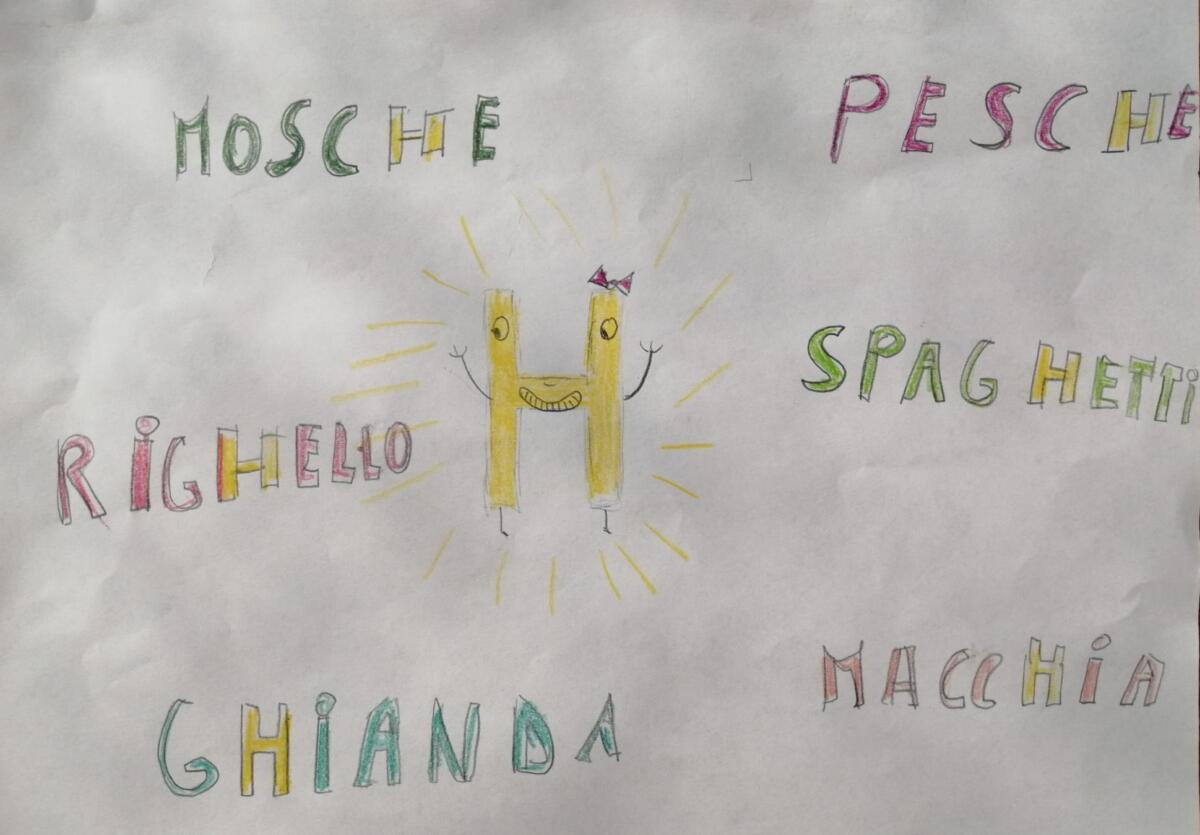 MOSCHE
PESCHE
H
SPAGHETTi
RiGHELLO
MACCHiA
GHiANDA